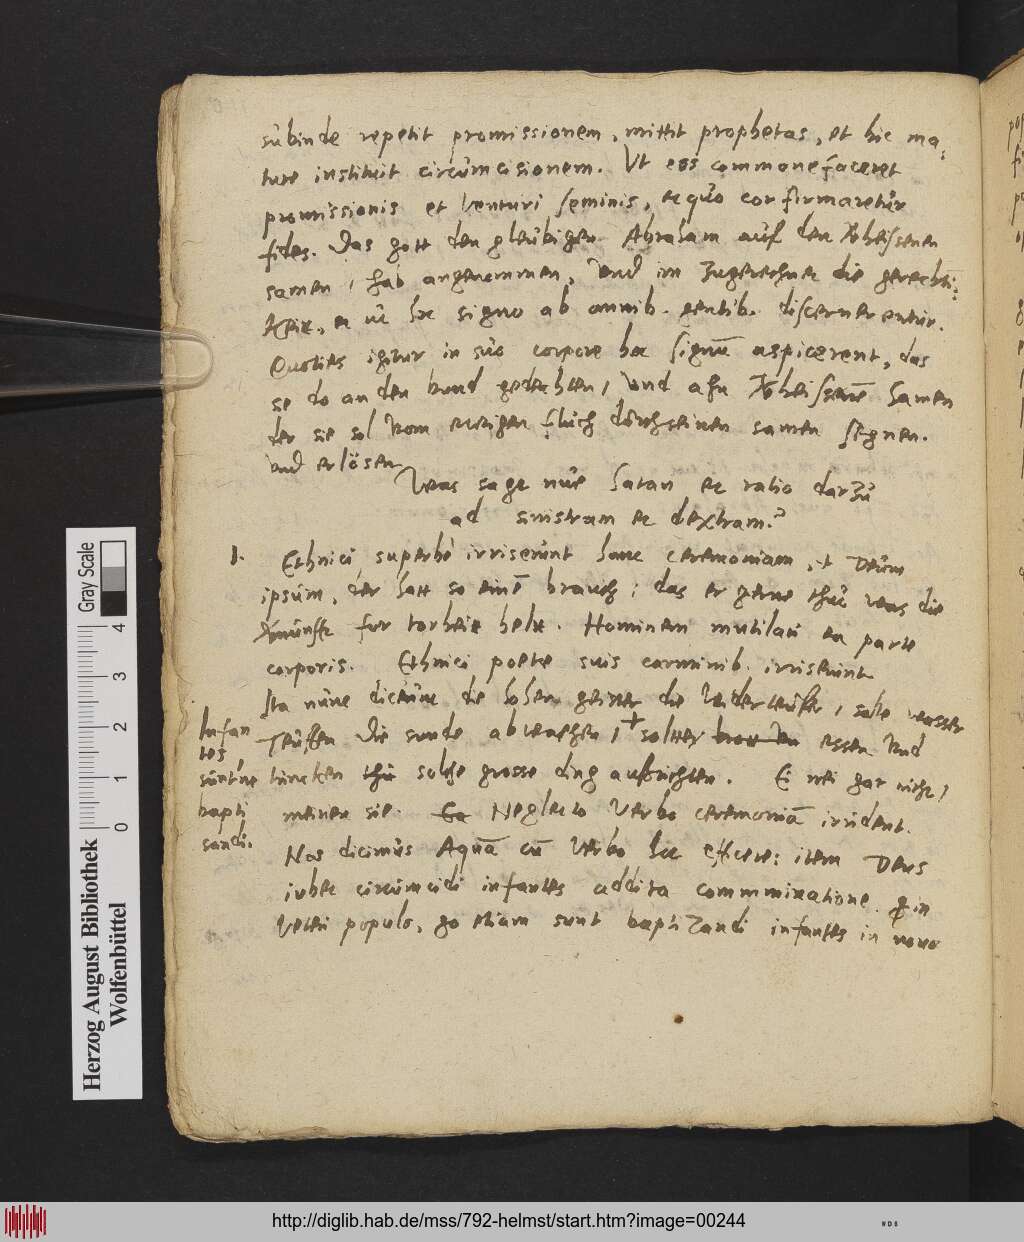 subinde repetit promissionem, mittit prophetas, et hic ma,
ture instituit circumcisionem. Vt eos commonefaceret
promissionis et venturi seminis, ac quo confirmaretur
fides. Das gott den gleubigen Abraham auf den verheissenen
samen, hab angenommen, vnd im zugerechnet die gerechti:
keit, et ut hoc signo ab omnib. gentib. discernerentur.
Quoties igitur in suo corpore hoc signū aspicerent, das
se do an den bund gedechten, vnd a̅ den verheissenē samen
der sie sol vom ewigen fluch durch seinen samen segnen.
vnd erlösen
Was sagt nue Satan et ratio darzu
ad sinistram et dextram.?
1. Ethnici superbè irriserunt hanc ceremoniam, et Deum
ipsum, der hatt so einē brauch: das er gerne thut was die
vernunfft fur torheit helt. Hominem mutilari ea parte
corporis. Ethnici poetae suis carminib. irriserunt
Ita nunc dicunt die losen geister die widerteuffer, solte wasser
Teuffen die sunde abwaschen, + solten essen vnd
trincken solche grosse ding ausrichten. Ei nei gar nicht,
meinen sie. Neglecto verbo ceremoniā irrident.
Nos dicimus Aquā cū verbo hoc efficere: item Deus
iubet circumcidi infantes addita comminatione in
veteri populo, go etiam sunt baptizandi infantes in nouo
Infan
tes
sunt ne
bapti
zandi.
Gray Scale
4 3 2 1 0
Herzog August Bibliothek
Wolfenbüttel
http://diglib.hab.de/mss/792-helmst/start.htm?image=00244